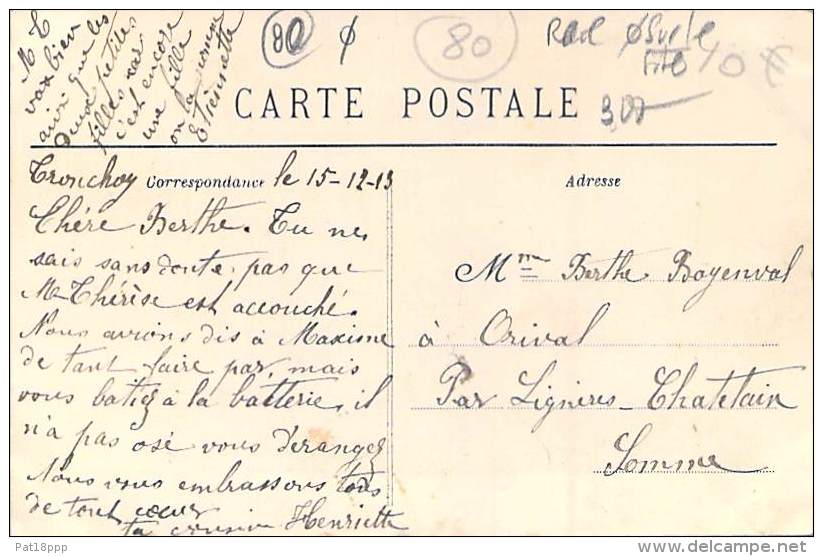 M T
va bien
ainsi que les
deux petites
filles car
c'est encore
une fille
on la nomme
Etiennette
80
80
3,00
10 €
CARTE POSTALE
Correspondance
Adresse
Tronchoy le 15-12-13
Chère Berthe. Tu ne
sais sans doute pas que
M Thérèse est accouché.
Nous avions dis à Maxime
de tant faire par, mais
vous batiez à la batterie, il
n'a pas osé vous déranger
Nous vous embrassons tous
de tout cœur
ta cousine Henriette
Mme Berthe Boyenval
à Orival
Par Lignières-Chatelain
Somme
Pat18ppp
delcampe.net